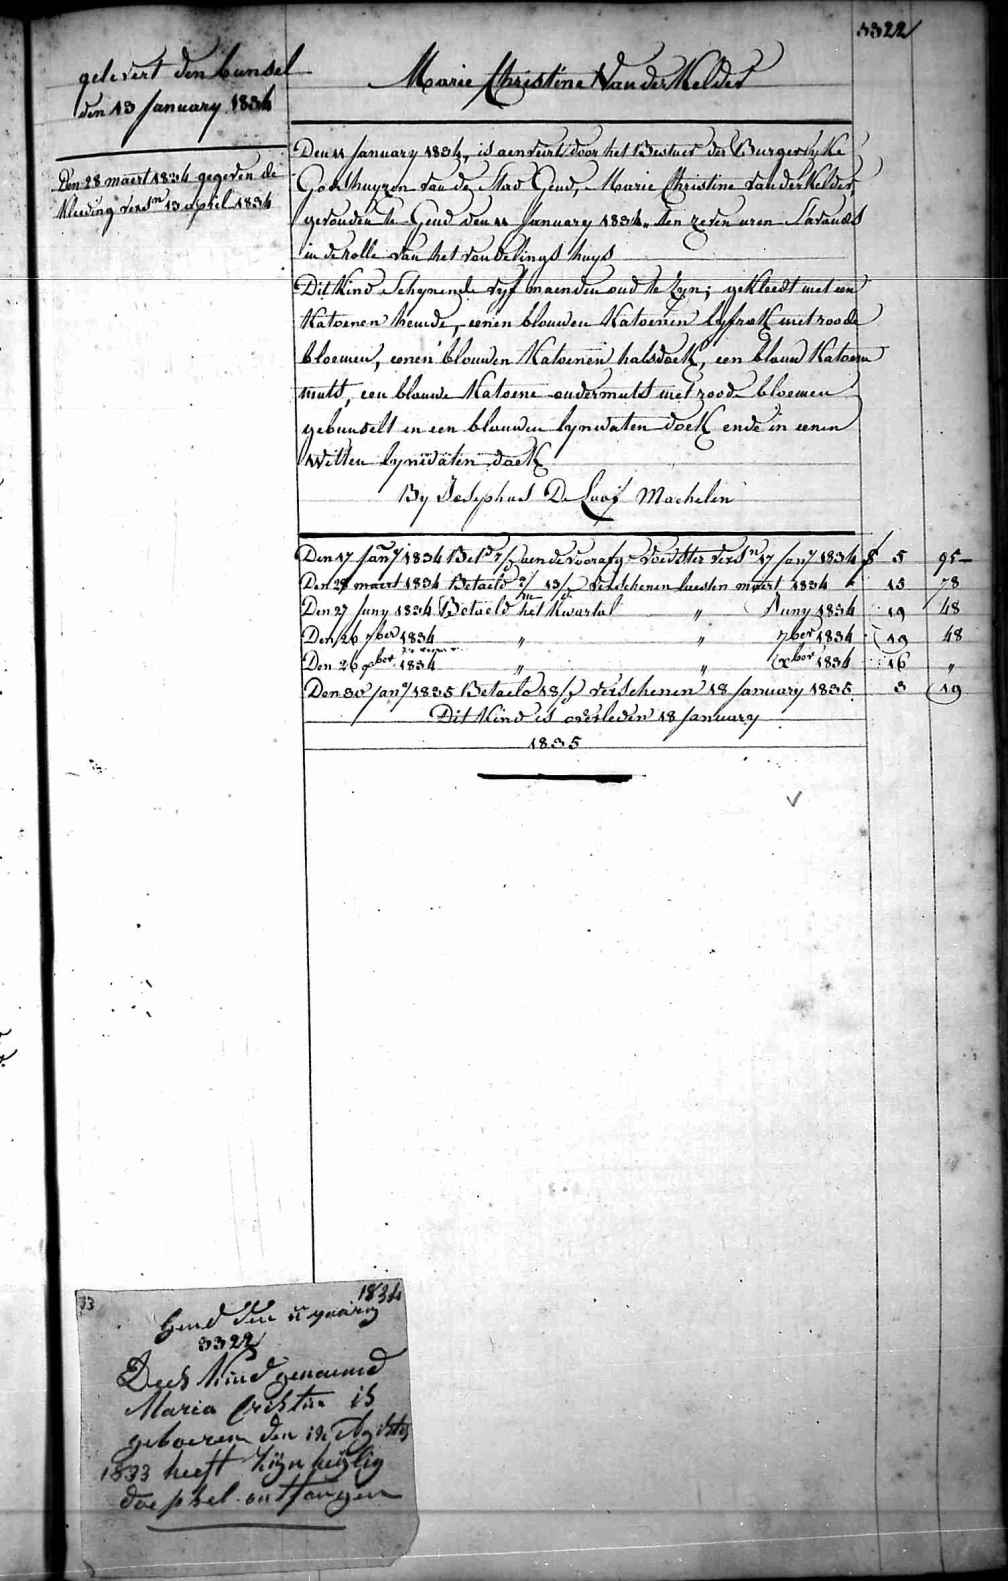 3322
gelevert den bunsel
den 13 January 1834
Den 28 maert 1834 gegeven de
kleeding versn 13 april 1834
Marie Christine Van der Kelder
Den 11 January 1834, is aenveirt door het Bestuer der Burgerlyke
Godshuyzen van de Stad Gend, Marie Christine van der Kelder,
gevonden te Gend den 11 January 1834 ten zeven uren s'avonds
in de rolle van het vondelings huys
Dit Kind schynende vyf maenden oud te zyn; gekleedt met een
Katoenen hemde, eenen blouwen Katoenen lyfrok met roode
bloemen, eenen blouwen Katoenen halsdoek, een blauw Katoene
muts, een blauwe Katoene ondermuts met roode bloemen
gebunselt in een blauwen lynwaten doek ende in eenen
witten lynwaten doek
By Josephus De Loof Machelen
Den 17 Jany 1834 Betd aen de voorafg. voedster versn 17 jany 1834 f 5 95
Den 28 maert 1834 Betaeld 13/ verschenen laesten maert 1834 15 78
Den 27 Juny 1834 Betaeld het Kwartal " Juny 1834 19 48
Den 26 7ber 1834 " " 7ber 1834 19 48
Den 26 xber 1834 " " xber 1834 16 "
Den 30 jany 1835 Betaeld 18/ verschenen 18 January 1835 3 19
Dit Kind is overleden 18 January
1835
33
1834
Gend den 11 yanury
3322
Dees Kind genaemd
Maria Cristina is
geboeren den 12 Augustus
1833 heeft zyn heylig
doepsel ontfangen